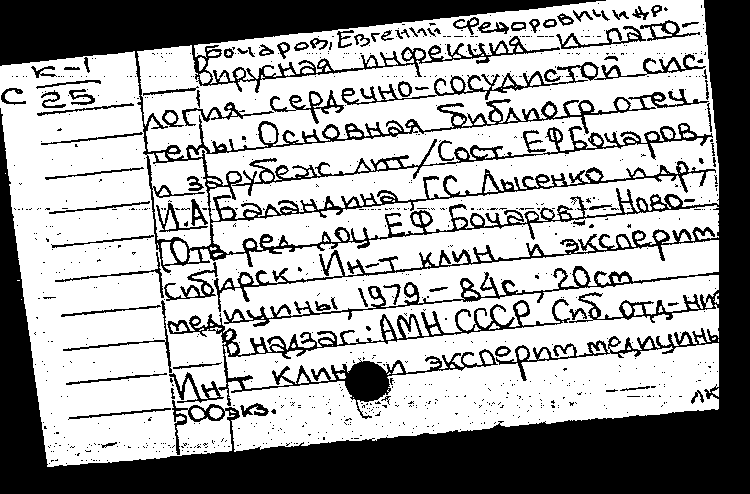 Бочаров, Евгений Федорович и др.
К-1
С 25
Вирусная инфекция и пато-
логия сердечно-сосудистой сис-
темы: Основная библиогр. отеч.
и зарубеж. лит. / Сост. Е.Ф Бочаров,
И.А Баландина, Г.С. Лысенко и др.;
[Отв. ред. доц. Е.Ф. Бочаров]. — Ново-
сибирск: Ин-т клин. и эксперим.
медицины, 1979. — 84 с.; 20 cm
В надзаг.: АМН СССР. Сиб. отд-ние
Ин-т клин. и эксперим медицины
500 экз.
ЛК